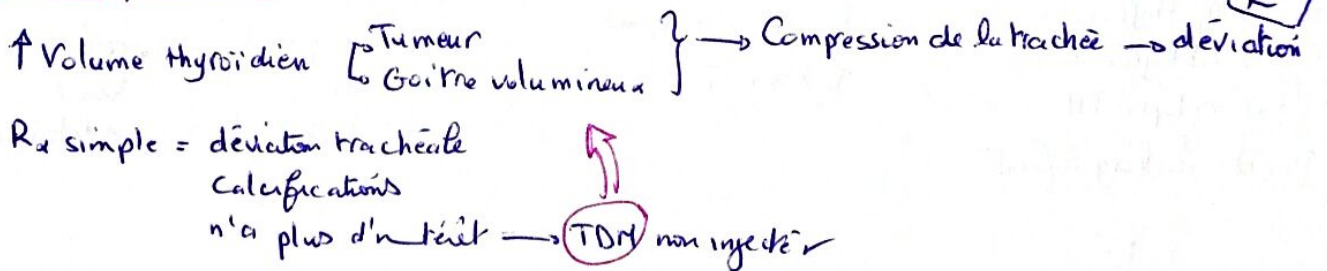 ↑ Volume thyroïdien Tumeur
Goitre volumineux } → Compression de la trachée → déviation
Rx simple = déviation trachéale
Calcifications
n'a plus d'intérêt → TDM non injectée